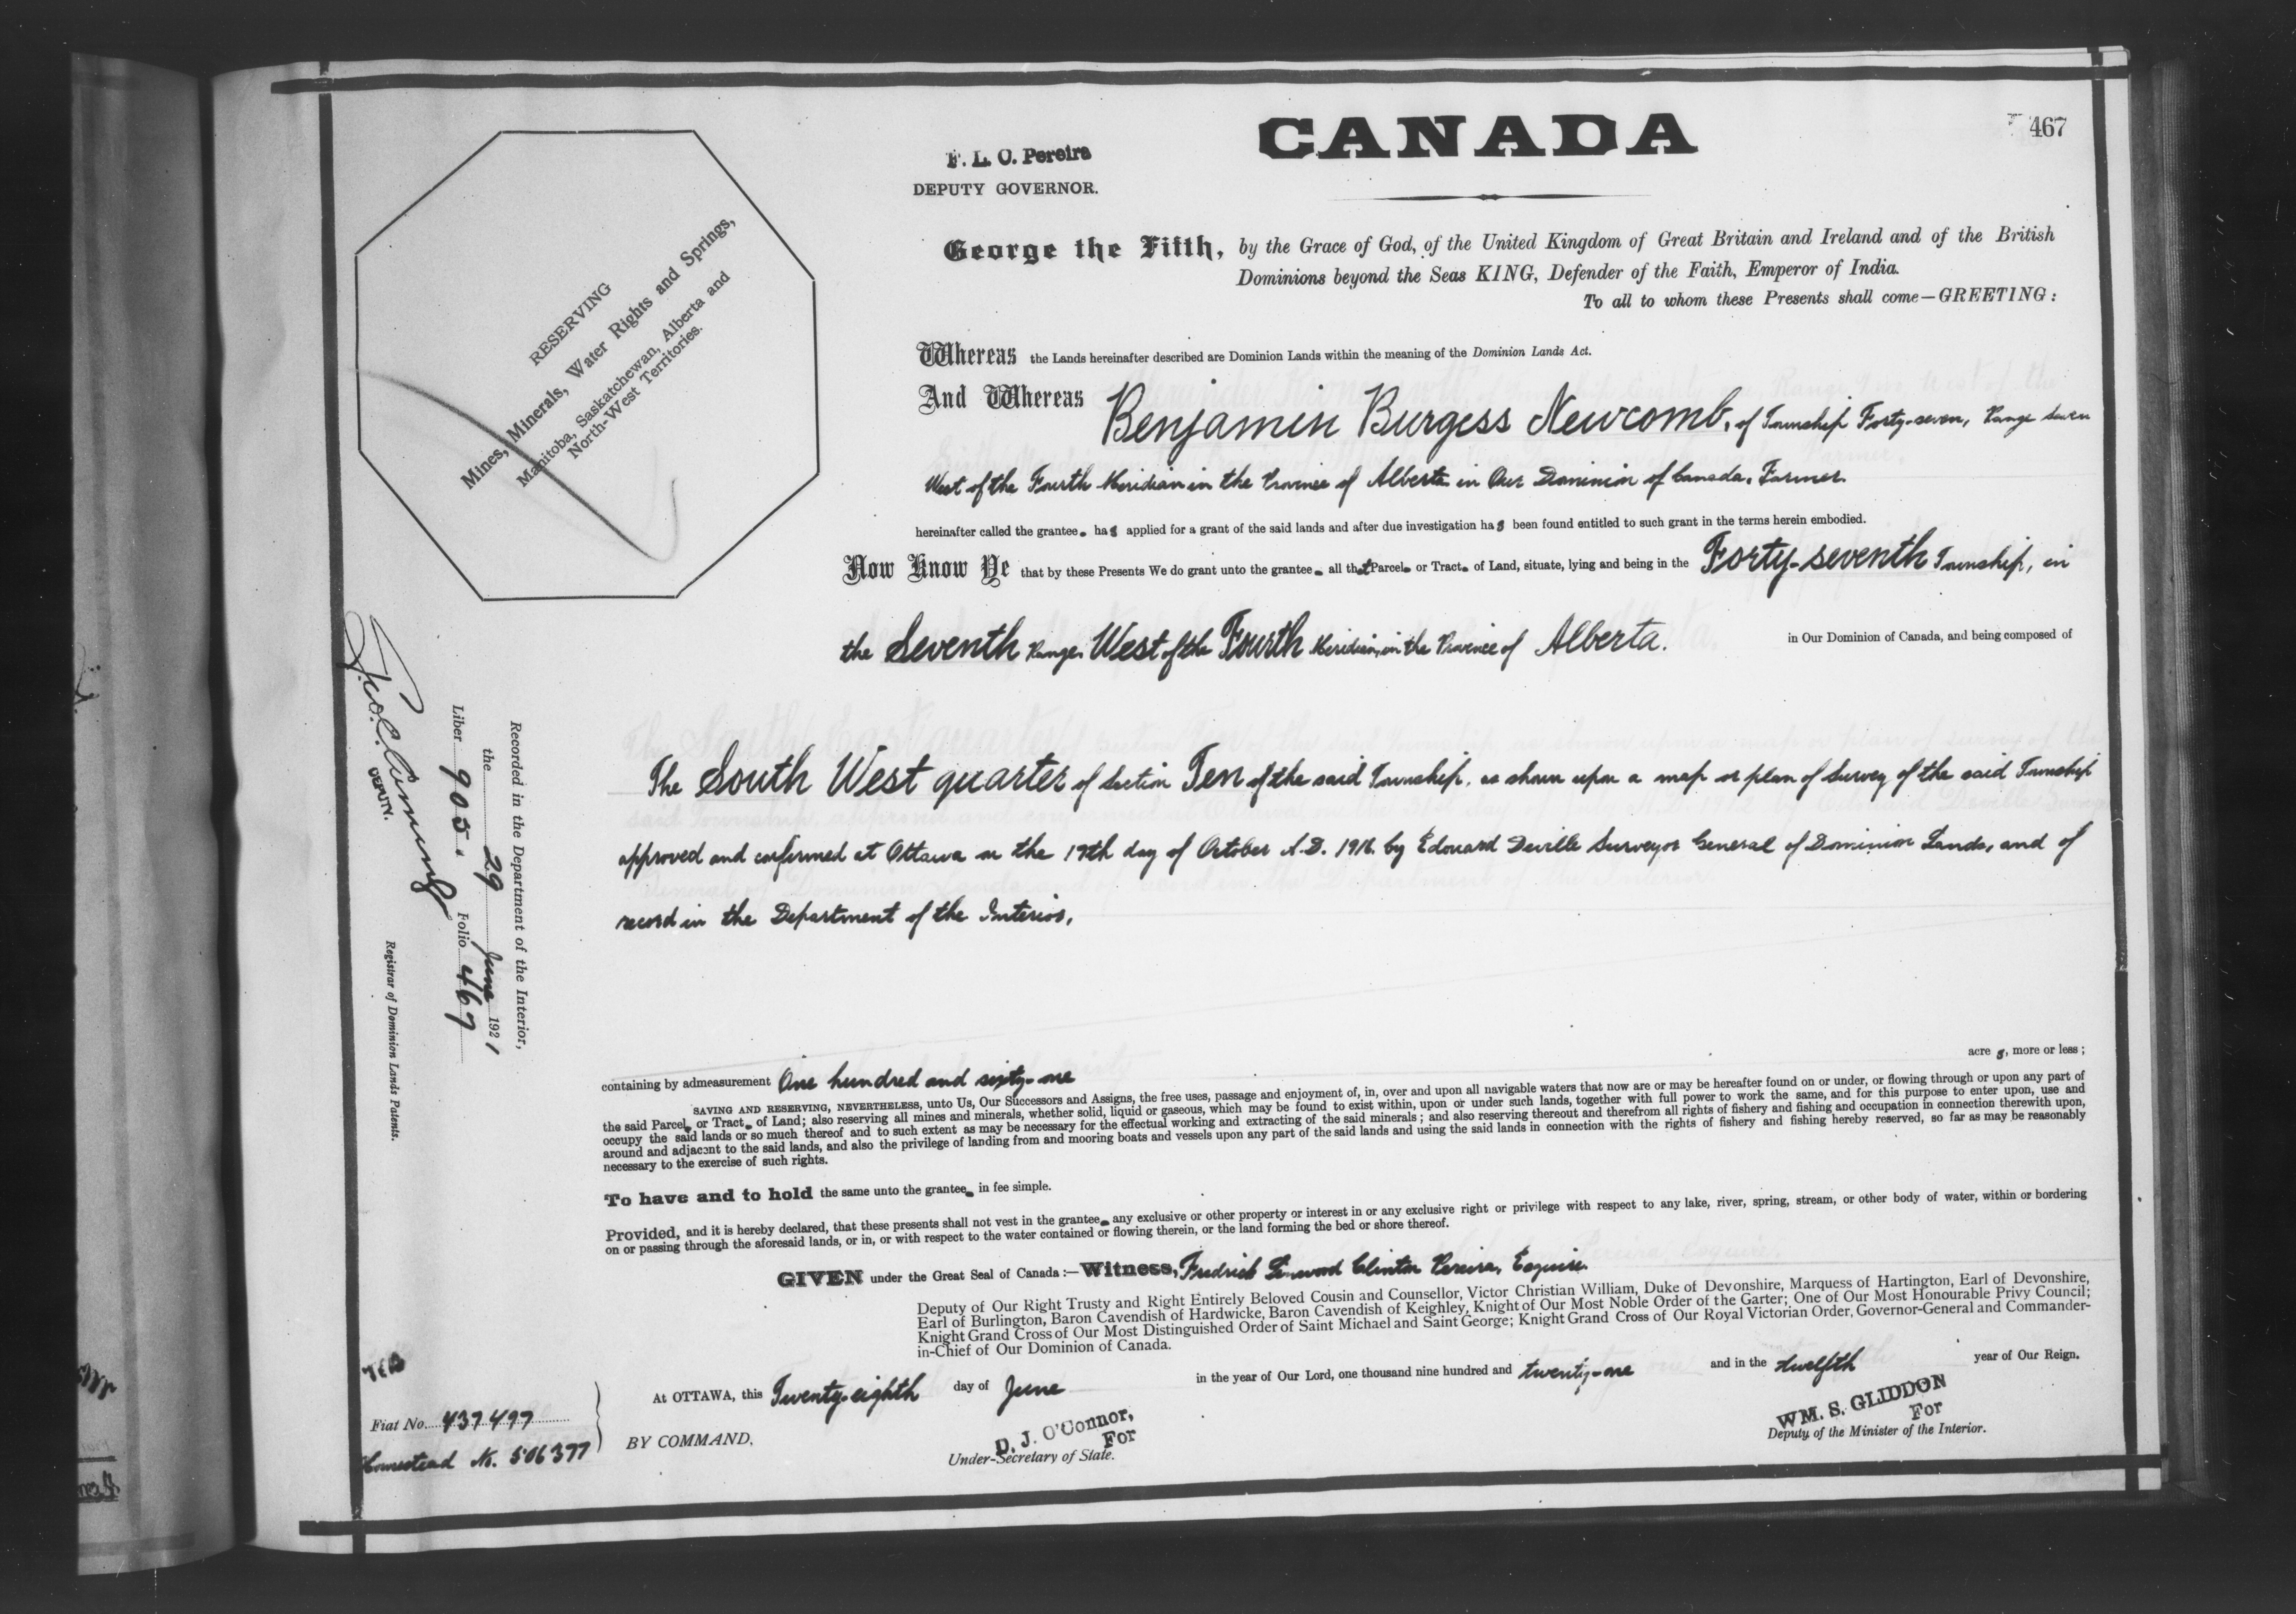 CANADA
467
F. L. C. Pereira
DEPUTY GOVERNOR.
George the Fifth, by the Grace of God, of the United Kingdom of Great Britain and Ireland and of the British
Dominions beyond the Seas KING, Defender of the Faith, Emperor of India.
To all to whom these Presents shall come—GREETING:
RESERVING
Mines, Minerals, Water Rights and Springs,
Manitoba, Saskatchewan, Alberta and
North-West Territories.
Whereas the Lands hereinafter described are Dominion Lands within the meaning of the Dominion Lands Act.
And Whereas Benjamin Burgess Newcomb, of Township Forty-seven, Range seven
West of the Fourth Meridian in the Province of Alberta in Our Dominion of Canada, Farmer.
hereinafter called the grantee has applied for a grant of the said lands and after due investigation has been found entitled to such grant in the terms herein embodied.
Now Know Ye that by these Presents We do grant unto the grantee all that Parcel or Tract of Land, situate, lying and being in the Forty-seventh Township, in
the Seventh Range, West of the Fourth Meridian, in the Province of Alberta. in Our Dominion of Canada, and being composed of
The South West quarter of Section Ten of the said Township, as shown upon a map or plan of Survey of the said Township
approved and confirmed at Ottawa on the 17th day of October A.D. by Edouard Deville Surveyor General of Dominion Lands, and of
record in the Department of the Interior,
Recorded in the Department of the Interior,
the 29 June 1921
Liber 905. Folio 467
DEPUTY.
Registrar of Dominion Lands Patents.
containing by admeasurement One hundred and sixty-one acres, more or less;
SAVING AND RESERVING, NEVERTHELESS, unto Us, Our Successors and Assigns, the free uses, passage and enjoyment of, in, over and upon all navigable waters that now are or may be hereafter found on or under, or flowing through or upon any part of
the said Parcel or Tract of Land; also reserving all mines and minerals, whether solid, liquid or gaseous, which may be found to exist within, upon or under such lands, together with full power to work the same, and for this purpose to enter upon, use and
occupy the said lands or so much thereof and to such extent as may be necessary for the effectual working and extracting of the said minerals; and also reserving thereout and therefrom all rights of fishery and fishing and occupation in connection therewith upon,
around and adjacent to the said lands, and also the privilege of landing from and mooring boats and vessels upon any part of the said lands and using the said lands in connection with the rights of fishery and fishing hereby reserved, so far as may be reasonably
necessary to the exercise of such rights.
To have and to hold the same unto the grantee in fee simple.
Provided, and it is hereby declared, that these presents shall not vest in the grantee any exclusive or other property or interest in or any exclusive right or privilege with respect to any lake, river, spring, stream, or other body of water, within or bordering
on or passing through the aforesaid lands, or in, or with respect to the water contained or flowing therein, or the land forming the bed or shore thereof.
GIVEN under the Great Seal of Canada:—Witness, Fredrick Linwood Clinton Pereira, Esquire.
Deputy of Our Right Trusty and Right Entirely Beloved Cousin and Counsellor, Victor Christian William, Duke of Devonshire, Marquess of Hartington, Earl of Devonshire,
Earl of Burlington, Baron Cavendish of Hardwicke, Baron Cavendish of Keighley, Knight of Our Most Noble Order of the Garter; One of Our Most Honourable Privy Council;
Knight Grand Cross of Our Most Distinguished Order of Saint Michael and Saint George; Knight Grand Cross of Our Royal Victorian Order, Governor-General and Commander-
in-Chief of Our Dominion of Canada.
At OTTAWA, this Twenty-eighth day of June in the year of Our Lord, one thousand nine hundred and twenty-one and in the twelfth year of Our Reign.
BY COMMAND,
D. J. O'Connor,
For
Under-Secretary of State.
WM. S. GLIDDON
For
Deputy of the Minister of the Interior.
Fiat No. 437497
Homestead No. 506377